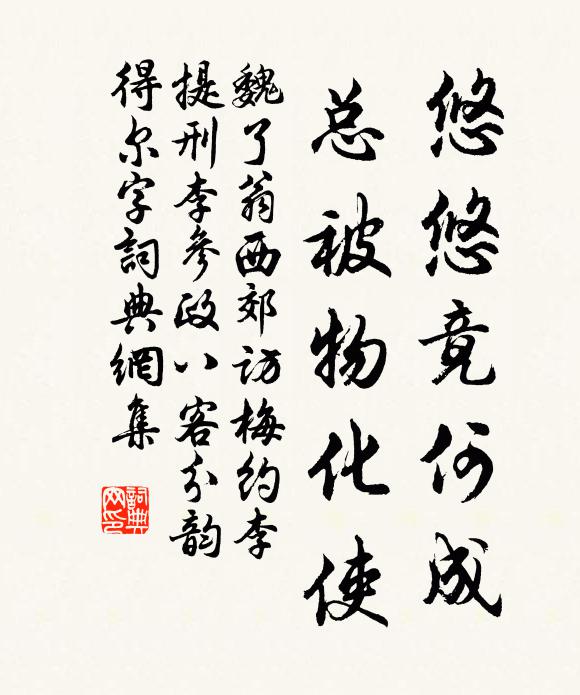 悠悠竟何成
总被物化使
魏了翁西郊访梅约李
提刑李參政八客分韵
得尔字詞典網集
詞典
网印